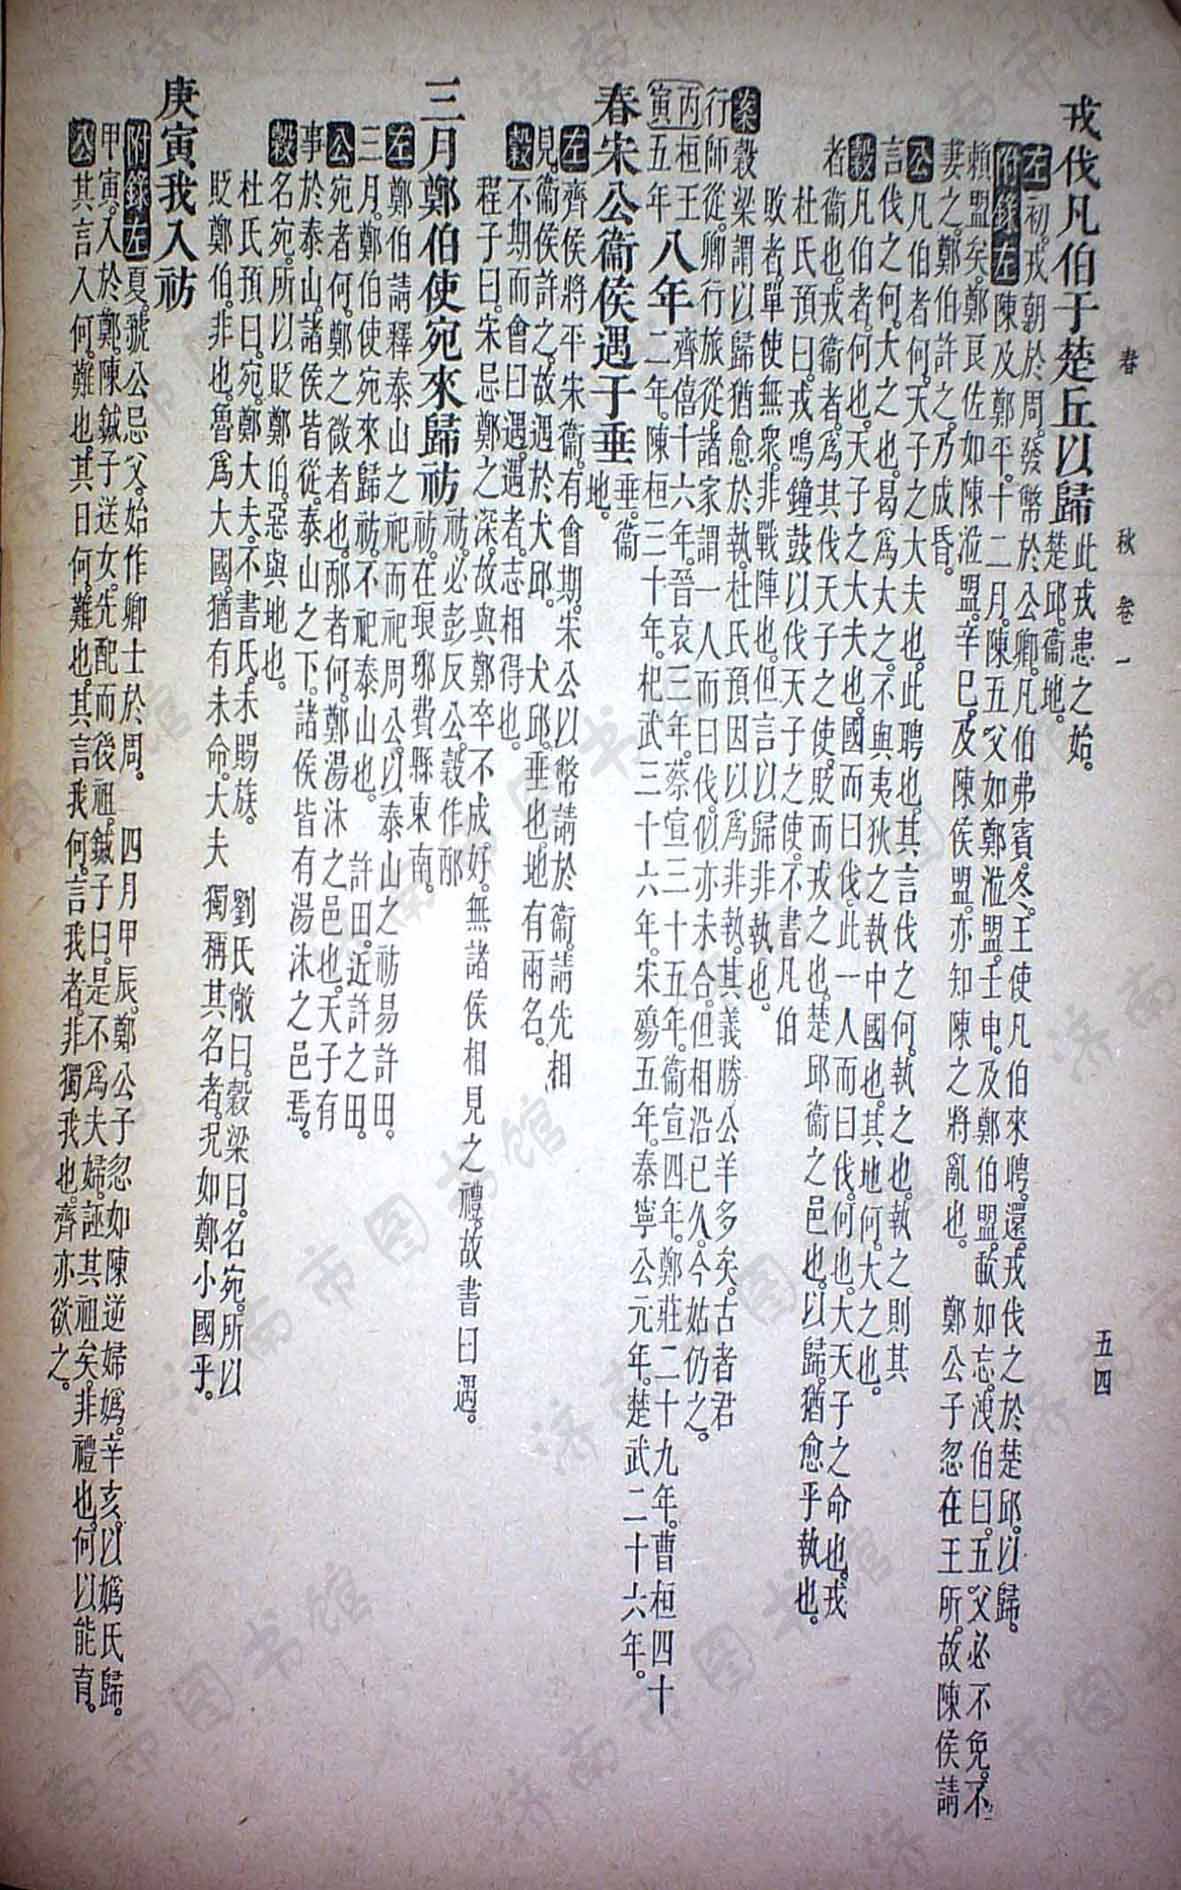 春秋 卷一 五四
戎伐凡伯于楚丘以歸 此戎患之始。
楚邱。衞地。
左 初。戎朝於周。發幣於公卿。凡伯弗賓。冬。王使凡伯來聘。還。戎伐之於楚邱。以歸。
附錄左 陳及鄭平。十二月。陳五父如鄭涖盟。壬申。及鄭伯盟。歃如忘。洩伯曰。五父必不免。不
賴盟矣。鄭良佐如陳涖盟。辛巳。及陳侯盟。亦知陳之將亂也。 鄭公子忽在王所。故陳侯請
妻之。鄭伯許之。乃成昏。
公 凡伯者何。天子之大夫也。此聘也。其言伐之何。執之也。執之則其
言伐之何。大之也。曷爲大之。不與夷狄之執中國也。其地何。大之也。
穀 凡伯者。何也。天子之大夫也。國而曰伐。此一人而曰伐。何也。大天子之命也。戎
者。衞也。戎衞者。爲其伐天子之使。貶而戎之也。楚邱。衞之邑也。以歸。猶愈乎執也。
杜氏預曰。戎鳴鐘鼓以伐天子之使。不書凡伯
敗者。單使無衆。非戰陣也。但言以歸。非執也。
案 穀梁謂以歸猶愈於執。杜氏預因以爲非執。其義勝公羊多矣。古者君
行師從。卿行旅從。諸家謂一人而曰伐。似亦未合。但相沿已久。今姑仍之。
丙寅 桓王五年 八年 齊僖十六年。晉哀三年。蔡宣三十五年。衞宣四年。鄭莊二十九年。曹桓四十
二年。陳桓三十年。杞武三十六年。宋殤五年。秦寧公元年。楚武二十六年。
春宋公衞侯遇于垂 垂。衞
地。
左 齊侯將平宋衞。有會期。宋公以幣請於衞。請先相
見。衞侯許之。故遇於犬邱。 犬邱。垂也。地有兩名。
穀 不期而會曰遇。遇者。志相得也。
程子曰。宋忌鄭之深。故與鄭卒不成好。無諸侯相見之禮。故書曰遇。
三月鄭伯使宛來歸祊 祊。必彭反。公穀作邴
祊。在琅琊費縣東南。
左 鄭伯請釋泰山之祀而祀周公。以泰山之祊易許田。
三月。鄭伯使宛來歸祊。不祀泰山也。 許田。近許之田。
公 宛者何。鄭之微者也。邴者何。鄭湯沐之邑也。天子有
事於泰山。諸侯皆從。泰山之下。諸侯皆有湯沐之邑焉。
穀 名宛。所以貶鄭伯。惡與地也。
杜氏預曰。宛。鄭大夫。不書氏。未賜族。 劉氏敞曰。穀梁曰。名宛。所以
貶鄭伯。非也。魯爲大國。猶有未命。大夫獨稱其名者。况如鄭小國乎。
庚寅我入祊
附錄左 夏。虢公忌父。始作卿士於周。 四月甲辰。鄭公子忽如陳逆婦嬀。辛亥。以嬀氏歸。
甲寅。入於鄭。陳鍼子送女。先配而後祖。鍼子曰。是不爲夫婦。誣其祖矣。非禮也。何以能育。
公 其言入何。難也。其日何。難也。其言我何。言我者。非獨我也。齊亦欲之。
濟南市图书馆